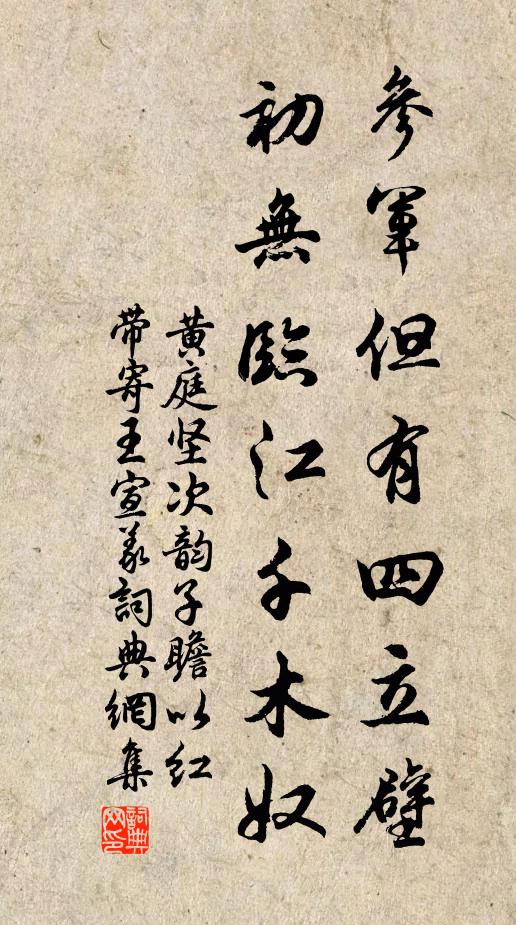 參軍但有四立壁
初無臨江千木奴
黄庭坚次韵子瞻以红
带寄王宣義詞典網集
詞典
网印